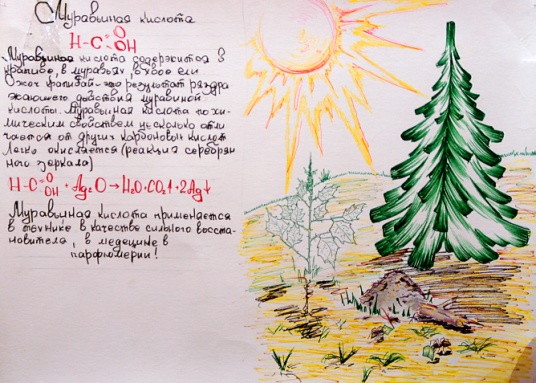 Муравьиная кислота
H-C=O OH
Муравьиная кислота содержится в
крапиве, в муравьях, в хвое ели
Ожог крапивой-это результат раздра
жающего действия муравьиной
кислоты. Муравьиная кислота по хи-
мическим свойствам несколько отли
чается от других карбоновых кислот
Легко окисляется (реакция серебрян
ного зеркала)
H-C=O OH + Ag₂O → H₂O+CO₂↑+2Ag↓
Муравьиная кислота применяется
в технике в качестве сильного восста-
новителя, в медецине в
парфюмерии!